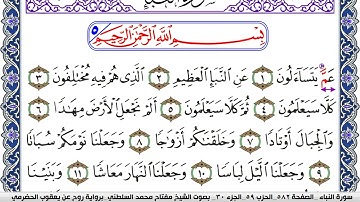 بِسْمِ اللَّهِ الرَّحْمَٰنِ الرَّحِيمِ
عَمَّ يَتَسَاءَلُونَ ١ عَنِ النَّبَإِ الْعَظِيمِ ٢ الَّذِي هُمْ فِيهِ مُخْتَلِفُونَ ٣
كَلَّا سَيَعْلَمُونَ ٤ ثُمَّ كَلَّا سَيَعْلَمُونَ ٥ أَلَمْ نَجْعَلِ الْأَرْضَ مِهَادًا ٦
وَالْجِبَالَ أَوْتَادًا ٧ وَخَلَقْنَاكُمْ أَزْوَاجًا ٨ وَجَعَلْنَا نَوْمَكُمْ سُبَاتًا
٩ وَجَعَلْنَا اللَّيْلَ لِبَاسًا ١٠ وَجَعَلْنَا النَّهَارَ مَعَاشًا ١١ وَبَنَيْنَا
سورة النباء الصفحة ٥٨٢ الحزب ٥٩ الجزء ٣٠ بصوت الشيخ مفتاح محمد السلطني برواية روح عن يعقوب الحضرمي